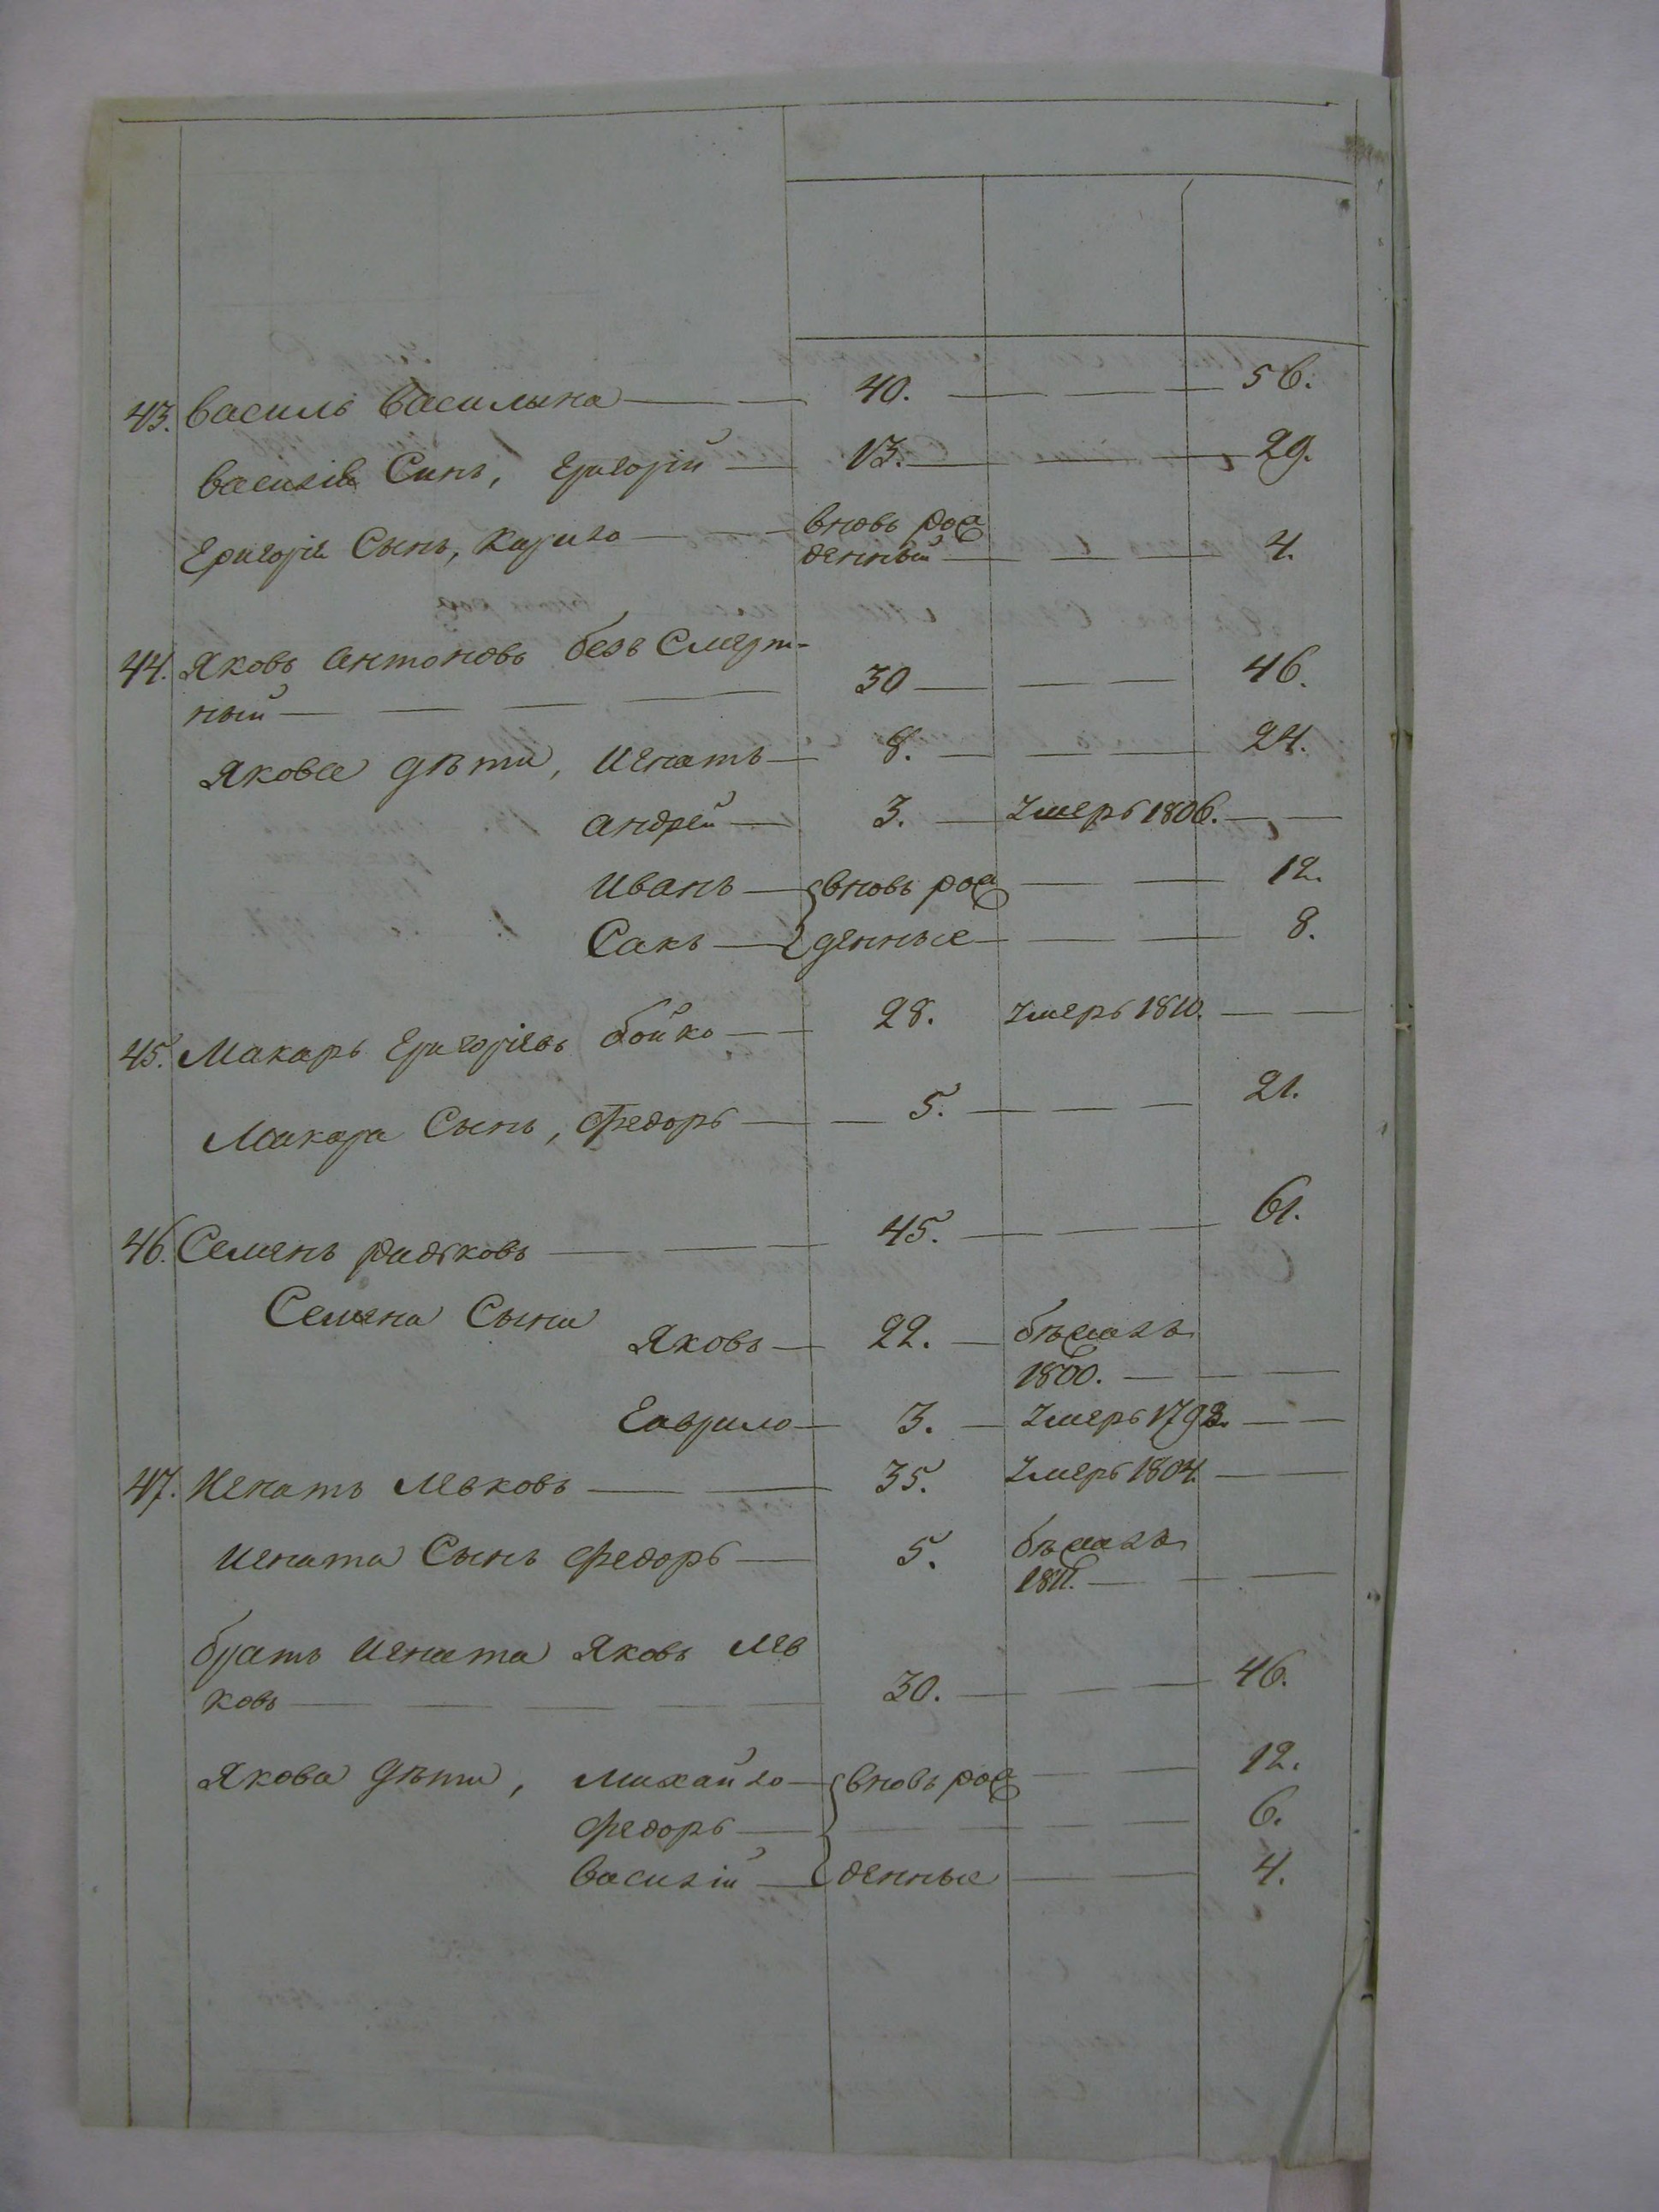 43. Василь Василына 40. 56.
Василія Синъ, Григорій 13. 29.
Григорія Сынъ, Кирило вновь рож
денный 4.
44. Яковъ Антоновъ безъ Смерт-
ный 30 46.
Якова дѣти, Игнатъ 8. 24.
Андрей 3. Умеръ 1806.
Иванъ вновь рож 12.
Сакъ денные 8.
45. Макаръ Григоріевъ бойко 28. Умеръ 1810.
Макара Сынъ, Федоръ 5. 21.
46. Семенъ радковъ 45. 61.
Семена Сыни
Яковъ 22. бѣжалъ
1800.
Гаврило 3. Умеръ 1793.
47. Игнатъ Левковъ 35. Умеръ 1804.
Игната Сынъ Федоръ 5. бѣжалъ
1811.
братъ Игната Яковъ Лев
ковъ 30. 46.
Якова дѣти, Михайло вновь рож 12.
Федоръ 6.
Василій денные 4.